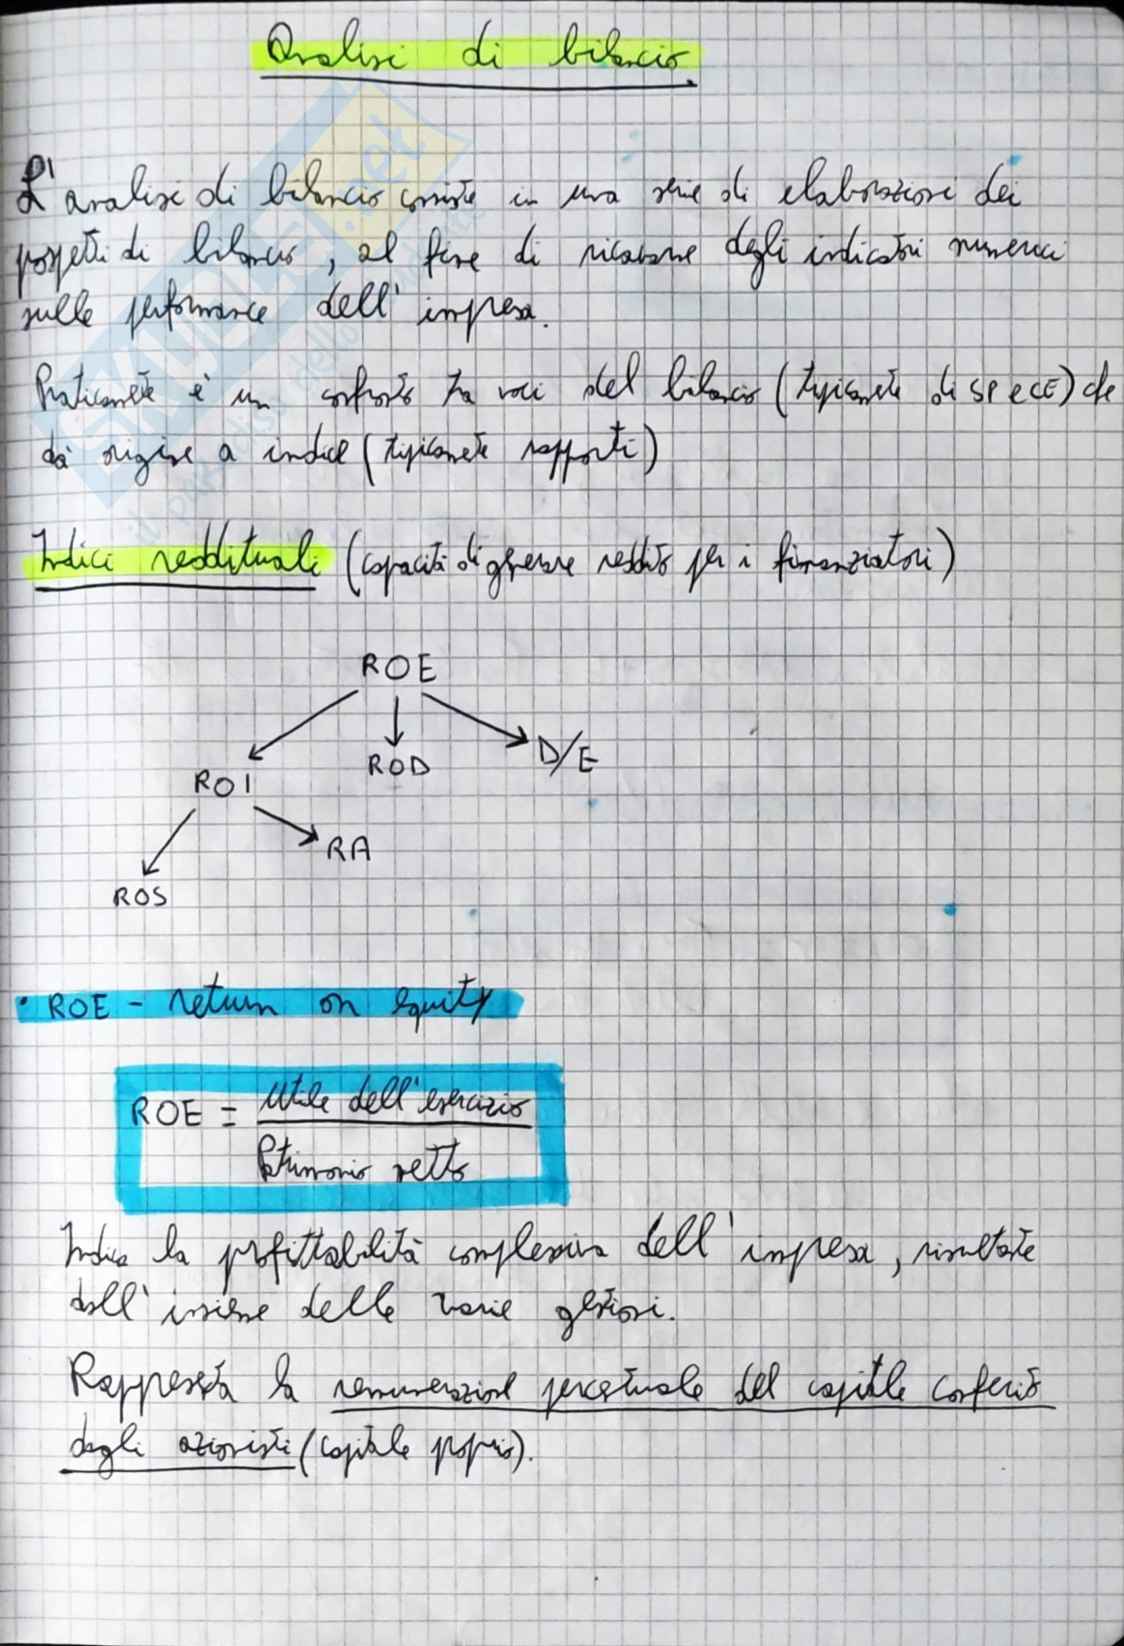 Analisi di bilancio
L'analisi di bilancio consiste in una serie di elaborazioni dei
prospetti di bilancio, al fine di ricavarne degli indicatori numerici
sulle performance dell'impresa.
Praticamente è un confronto tra voci del bilancio (tipicamente di SP e CE) che
dà origine a indici (tipicamente rapporti)
Indici reddituali (capacità di generare reddito per i finanziatori)
ROE
ROI ROD D/E
ROS RA
• ROE - return on equity
ROE = Utile dell'esercizio
Patrimonio netto
Indica la profittabilità complessiva dell'impresa, risultante
dall'insieme delle varie gestioni.
Rappresenta la remunerazione percentuale del capitale conferito
dagli azionisti (capitale proprio).
SKUOLA.net